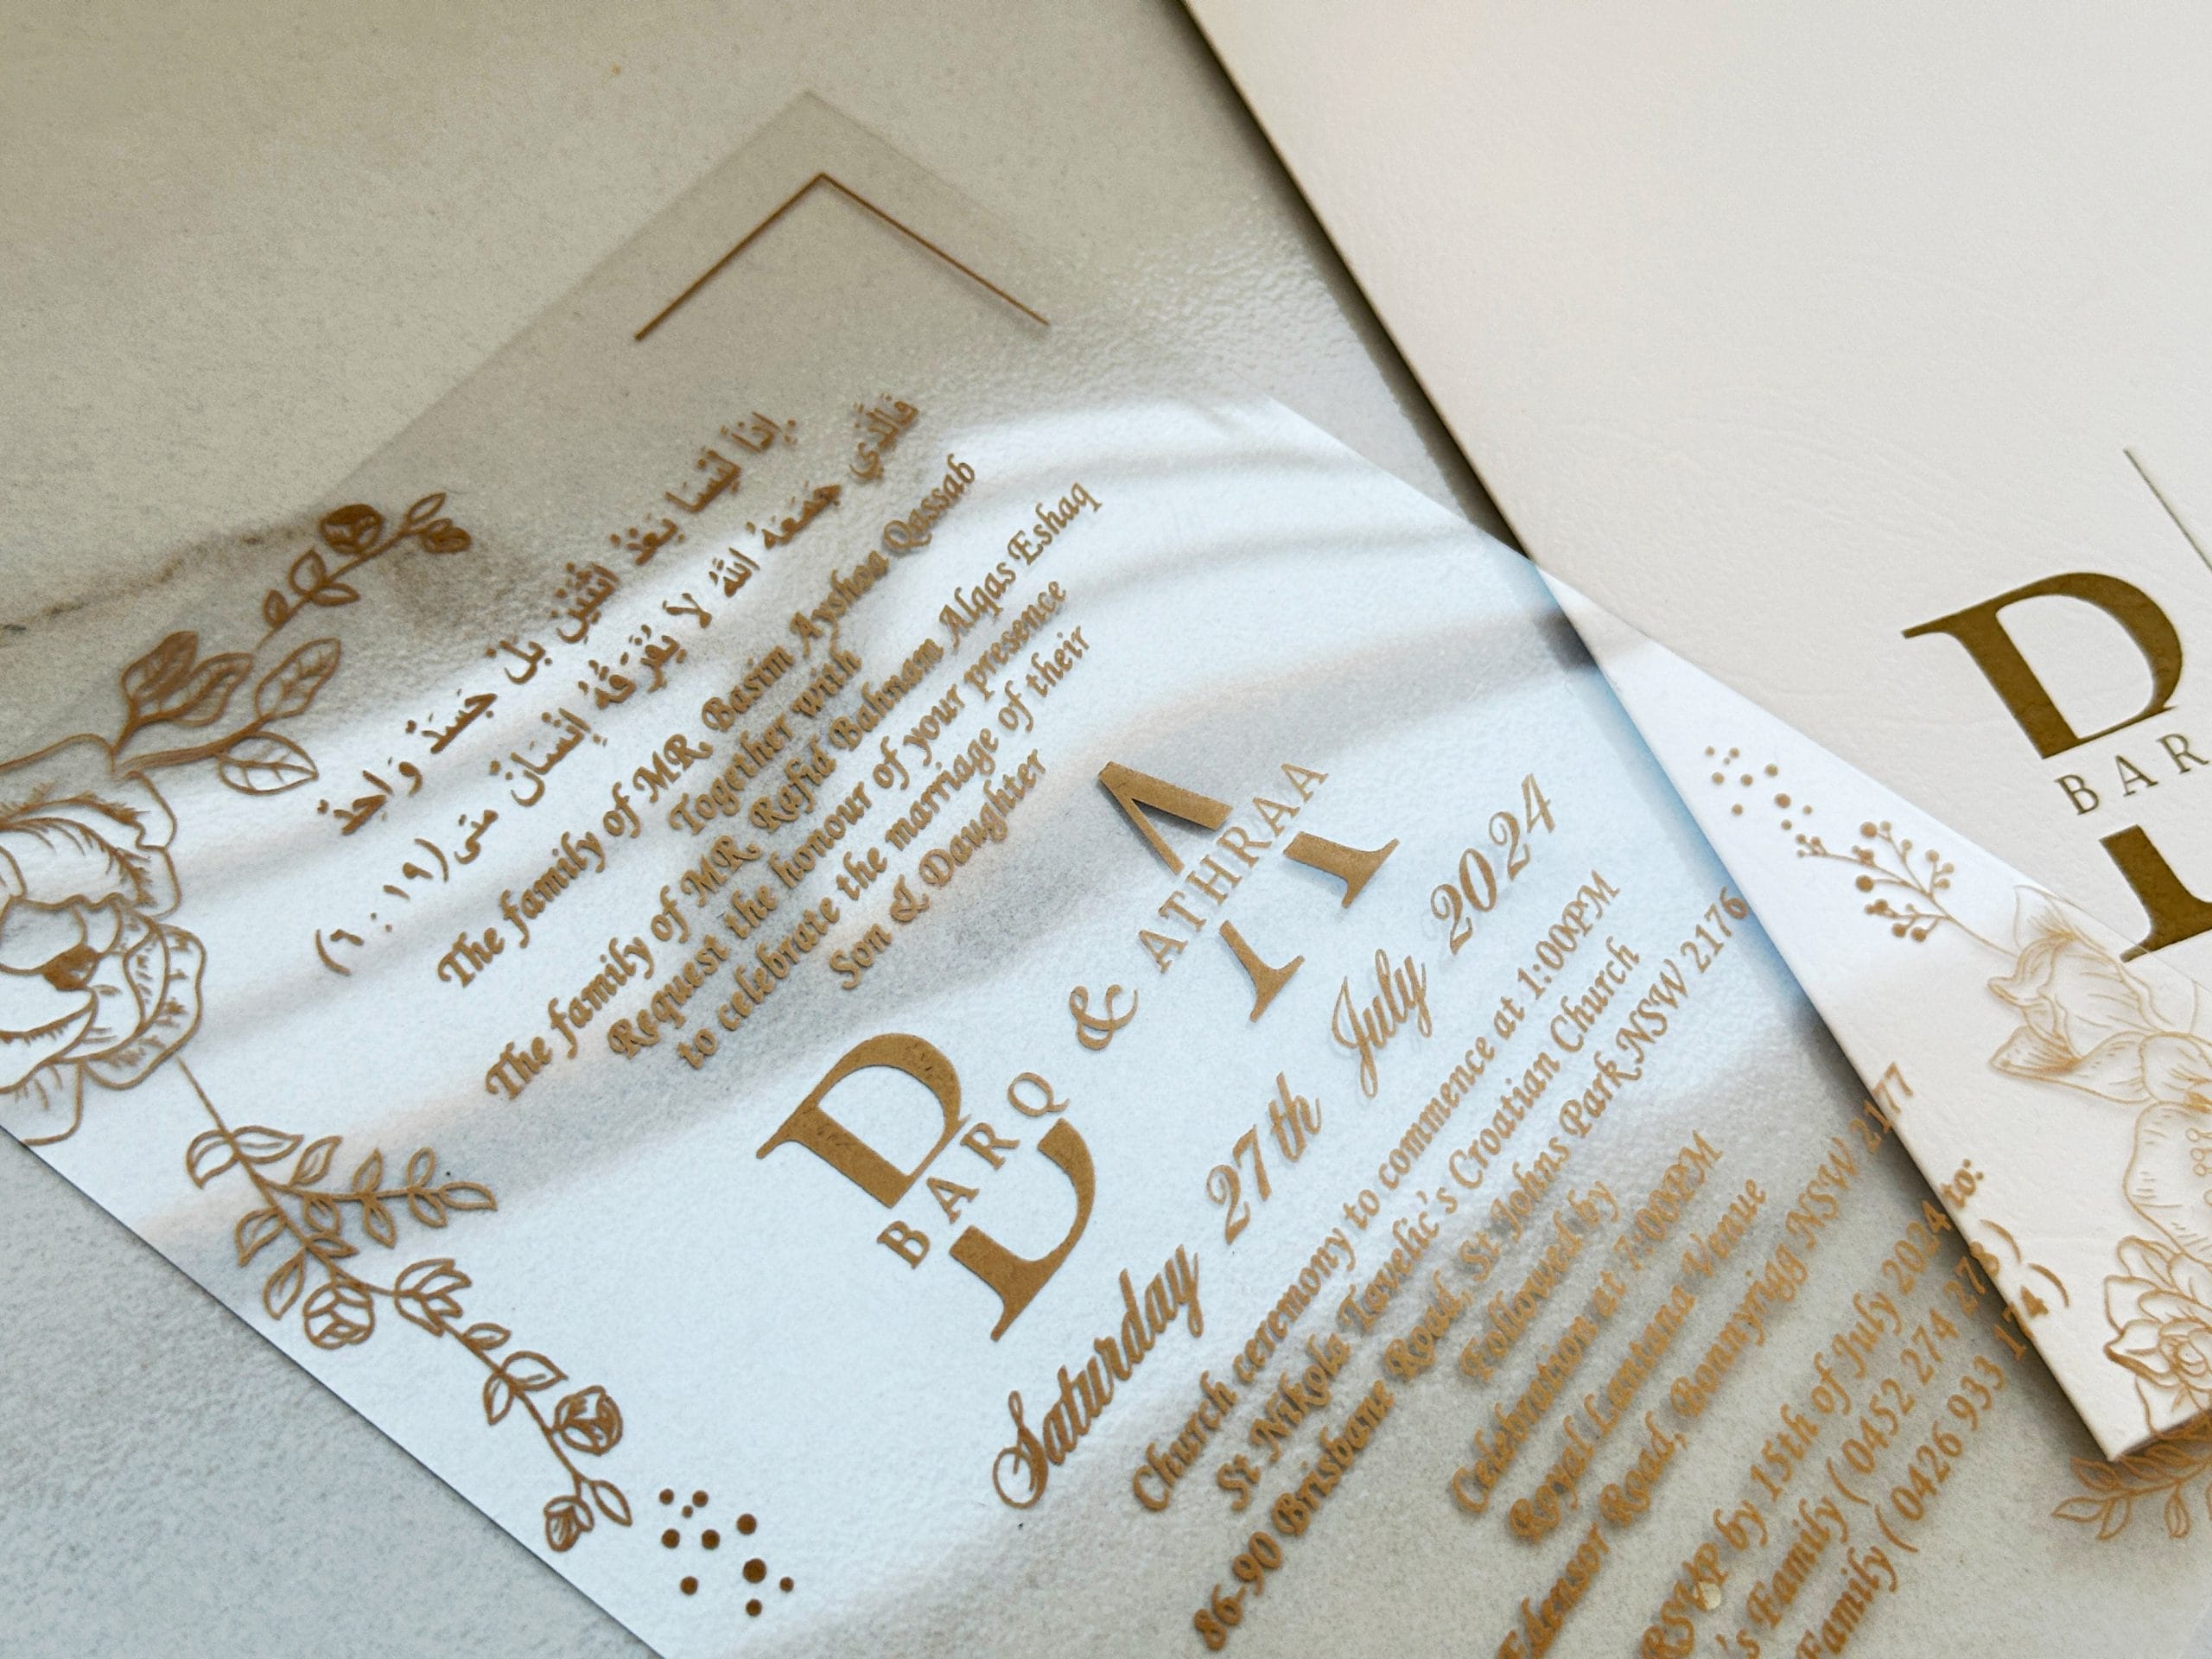 إِذاً لَيْسَا بَعْدُ اثْنَيْنِ بَلْ جَسَدٌ وَاحِدٌ
فَالَّذِي جَمَعَهُ اللهُ لاَ يُفَرِّقُهُ إِنْسَانٌ متى (١٩ : ٦)
The family of MR. Basim Ayshoa Qassab
Together with
The family of MR. Rafid Bahnam Alqas Eshaq
Request the honour of your presence
to celebrate the marriage of their
Son & Daughter
B
BARQ
&
A
ATHRAA
Saturday 27th July 2024
Church ceremony to commence at 1:00PM
St Nikola Tavelic's Croatian Church
86-90 Brisbane Road, St Johns Park NSW 2176
Followed by
Celebration at 7:00PM
Royal Lantana Venue
Edensor Road, Bonnyrigg NSW 2177
RSVP by 15th of July 2024 to:
's Family ( 0452 274 273 )
Family ( 0426 933 174 )
B
BAR